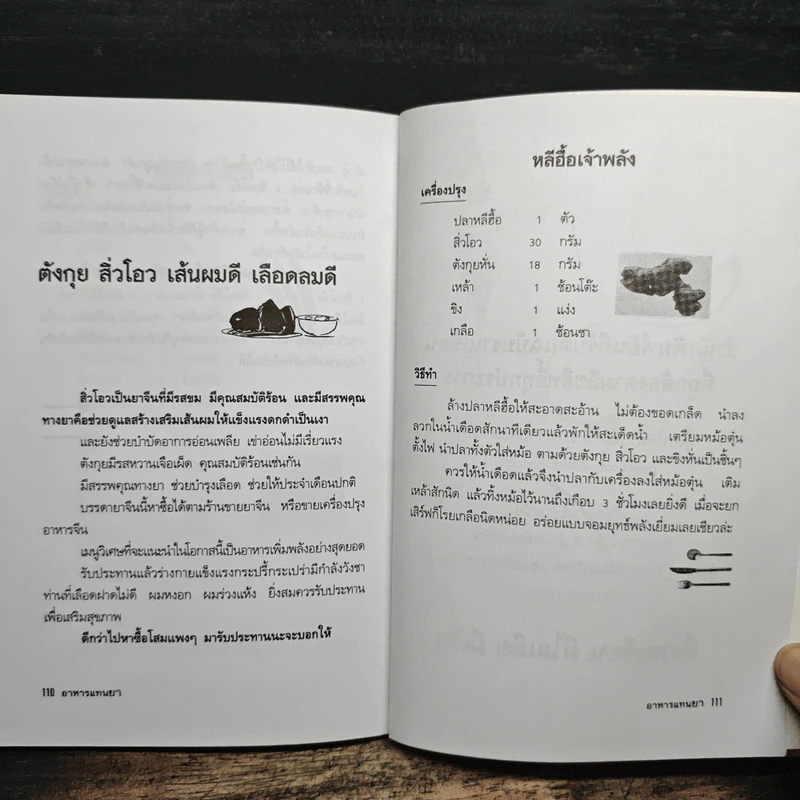 ตังกุย สิ่วโอว เส้นผมดี เลือดลมดี
สิ่วโอวเป็นยาจีนที่มีรสขม มีคุณสมบัติร้อน และมีสรรพคุณ
ทางยาคือช่วยดูแลสร้างเสริมเส้นผมให้แข็งแรงดกดำเป็นเงา
และยังช่วยบำบัดอาการอ่อนเพลีย เข่าอ่อนไม่มีเรี่ยวแรง
ตังกุยมีรสหวานเจือเผ็ด คุณสมบัติร้อนเช่นกัน
มีสรรพคุณทางยา ช่วยบำรุงเลือด ช่วยให้ประจำเดือนปกติ
บรรดายาจีนนี้หาซื้อได้ตามร้านขายยาจีน หรือขายเครื่องปรุง
อาหารจีน
เมนูวิเศษที่จะแนะนำในโอกาสนี้เป็นอาหารเพิ่มพลังอย่างสุดยอด
รับประทานแล้วร่างกายแข็งแรงกระปรี้กระเปร่ามีกำลังวังชา
ท่านที่เลือดฝาดไม่ดี ผมหงอก ผมร่วงแห้ง ยิ่งสมควรรับประทาน
เพื่อเสริมสุขภาพ
ดีกว่าไปหาซื้อโสมแพงๆ มารับประทานนะจะบอกให้
110 อาหารแทนยา
หลีฮื้อเจ้าพลัง
เครื่องปรุง
ปลาหลีฮื้อ 1 ตัว
สิ่วโอว 30 กรัม
ตังกุยหั่น 18 กรัม
เหล้า 1 ช้อนโต๊ะ
ขิง 1 แง่ง
เกลือ 1 ช้อนชา
วิธีทำ
ล้างปลาหลีฮื้อให้สะอาดสะอ้าน ไม่ต้องขอดเกล็ด นำลง
ลวกในน้ำเดือดสักนาทีเดียวแล้วพักให้สะเด็ดน้ำ เตรียมหม้อตุ๋น
ตั้งไฟ นำปลาทั้งตัวใส่หม้อ ตามด้วยตังกุย สิ่วโอว และขิงหั่นเป็นชิ้นๆ
ควรให้น้ำเดือดแล้วจึงนำปลากับเครื่องลงใส่หม้อตุ๋น เติม
เหล้าสักนิด แล้วทิ้งหม้อไว้นานถึงเกือบ 3 ชั่วโมงเลยยิ่งดี เมื่อจะยก
เสิร์ฟก็โรยเกลือนิดหน่อย อร่อยแบบจอมยุทธ์พลังเยี่ยมเลยเชียวล่ะ
อาหารแทนยา 111